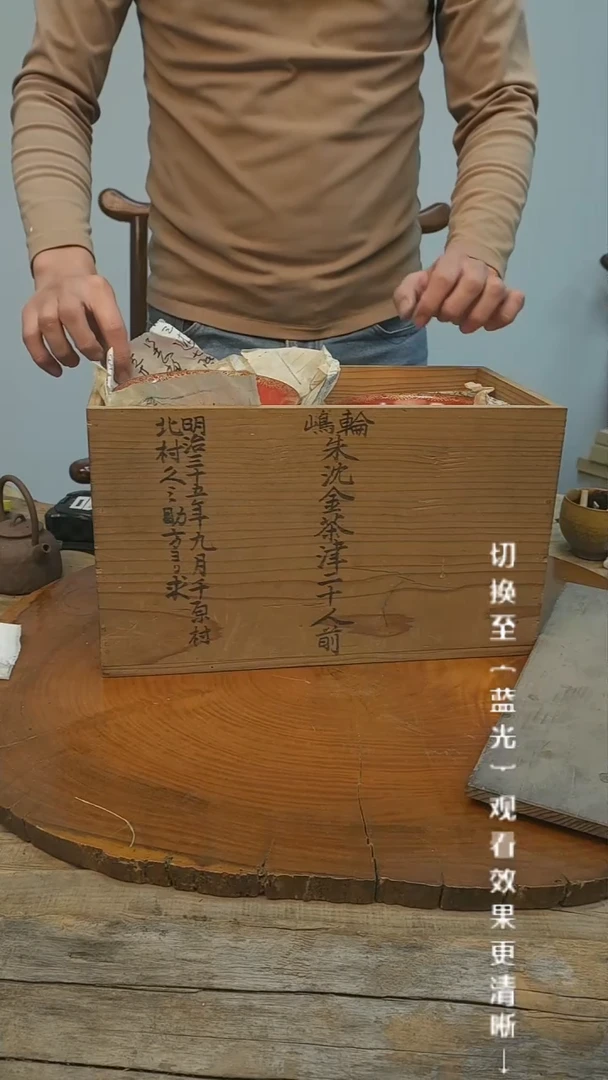 輪嶋朱沈金茶津二十人前
明治三十五年九月千原村
北村久ミ助方ヨリ求
切换至（蓝光）观看效果更清晰→